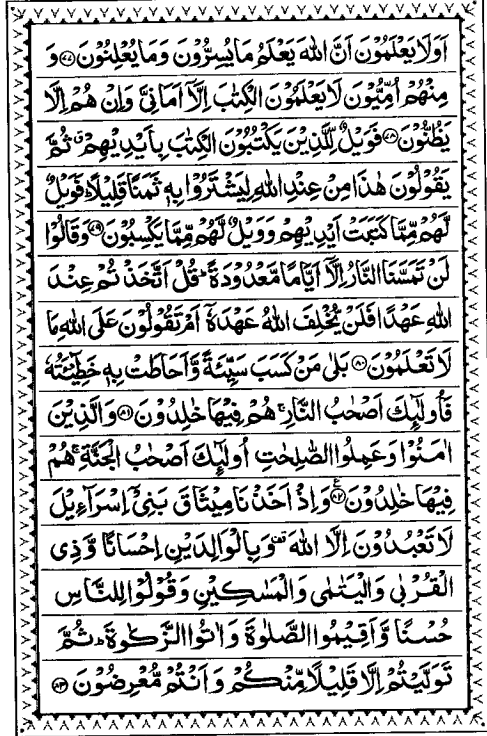 اَوَلَا يَعْلَمُوْنَ اَنَّ اللّٰهَ يَعْلَمُ مَا يُسِرُّوْنَ وَمَا يُعْلِنُوْنَ ﴿۷۷﴾ وَ
مِنْهُمْ اُمِّيُّوْنَ لَا يَعْلَمُوْنَ الْكِتٰبَ اِلَّاۤ اَمَانِيَّ وَاِنْ هُمْ اِلَّا
يَظُنُّوْنَ ﴿۷۸﴾ فَوَيْلٌ لِّلَّذِيْنَ يَكْتُبُوْنَ الْكِتٰبَ بِاَيْدِيْهِمْ ۗ ثُمَّ
يَقُوْلُوْنَ هٰذَا مِنْ عِنْدِ اللّٰهِ لِيَشْتَرُوْا بِهٖ ثَمَنًا قَلِيْلًا ؕ فَوَيْلٌ
لَّهُمْ مِّمَّا كَتَبَتْ اَيْدِيْهِمْ وَوَيْلٌ لَّهُمْ مِّمَّا يَكْسِبُوْنَ ﴿۷۹﴾ وَقَالُوْا
لَنْ تَمَسَّنَا النَّارُ اِلَّاۤ اَيَّامًا مَّعْدُوْدَةً ؕ قُلْ اَتَّخَذْتُمْ عِنْدَ
اللّٰهِ عَهْدًا فَلَنْ يُّخْلِفَ اللّٰهُ عَهْدَهٗۤ اَمْ تَقُوْلُوْنَ عَلَى اللّٰهِ مَا
لَا تَعْلَمُوْنَ ﴿۸۰﴾ بَلٰى مَنْ كَسَبَ سَيِّئَةً وَّاَحَاطَتْ بِهٖ خَطِيْٓـَٔتُهٗ
فَاُولٰٓئِكَ اَصْحٰبُ النَّارِ ۚ هُمْ فِيْهَا خٰلِدُوْنَ ﴿۸۱﴾ وَالَّذِيْنَ
اٰمَنُوْا وَعَمِلُوا الصّٰلِحٰتِ اُولٰٓئِكَ اَصْحٰبُ الْجَنَّةِ ۚ هُمْ
فِيْهَا خٰلِدُوْنَ ﴿۸۲﴾ وَاِذْ اَخَذْنَا مِيْثَاقَ بَنِيْۤ اِسْرَآءِيْلَ
لَا تَعْبُدُوْنَ اِلَّا اللّٰهَ ۫ وَبِالْوَالِدَيْنِ اِحْسَانًا وَّذِى
الْقُرْبٰى وَالْيَتٰمٰى وَالْمَسٰكِيْنِ وَقُوْلُوْا لِلنَّاسِ
حُسْنًا وَّاَقِيْمُوا الصَّلٰوةَ وَاٰتُوا الزَّكٰوةَ ؕ ثُمَّ
تَوَلَّيْتُمْ اِلَّا قَلِيْلًا مِّنْكُمْ وَاَنْتُمْ مُّعْرِضُوْنَ ﴿۸۳﴾